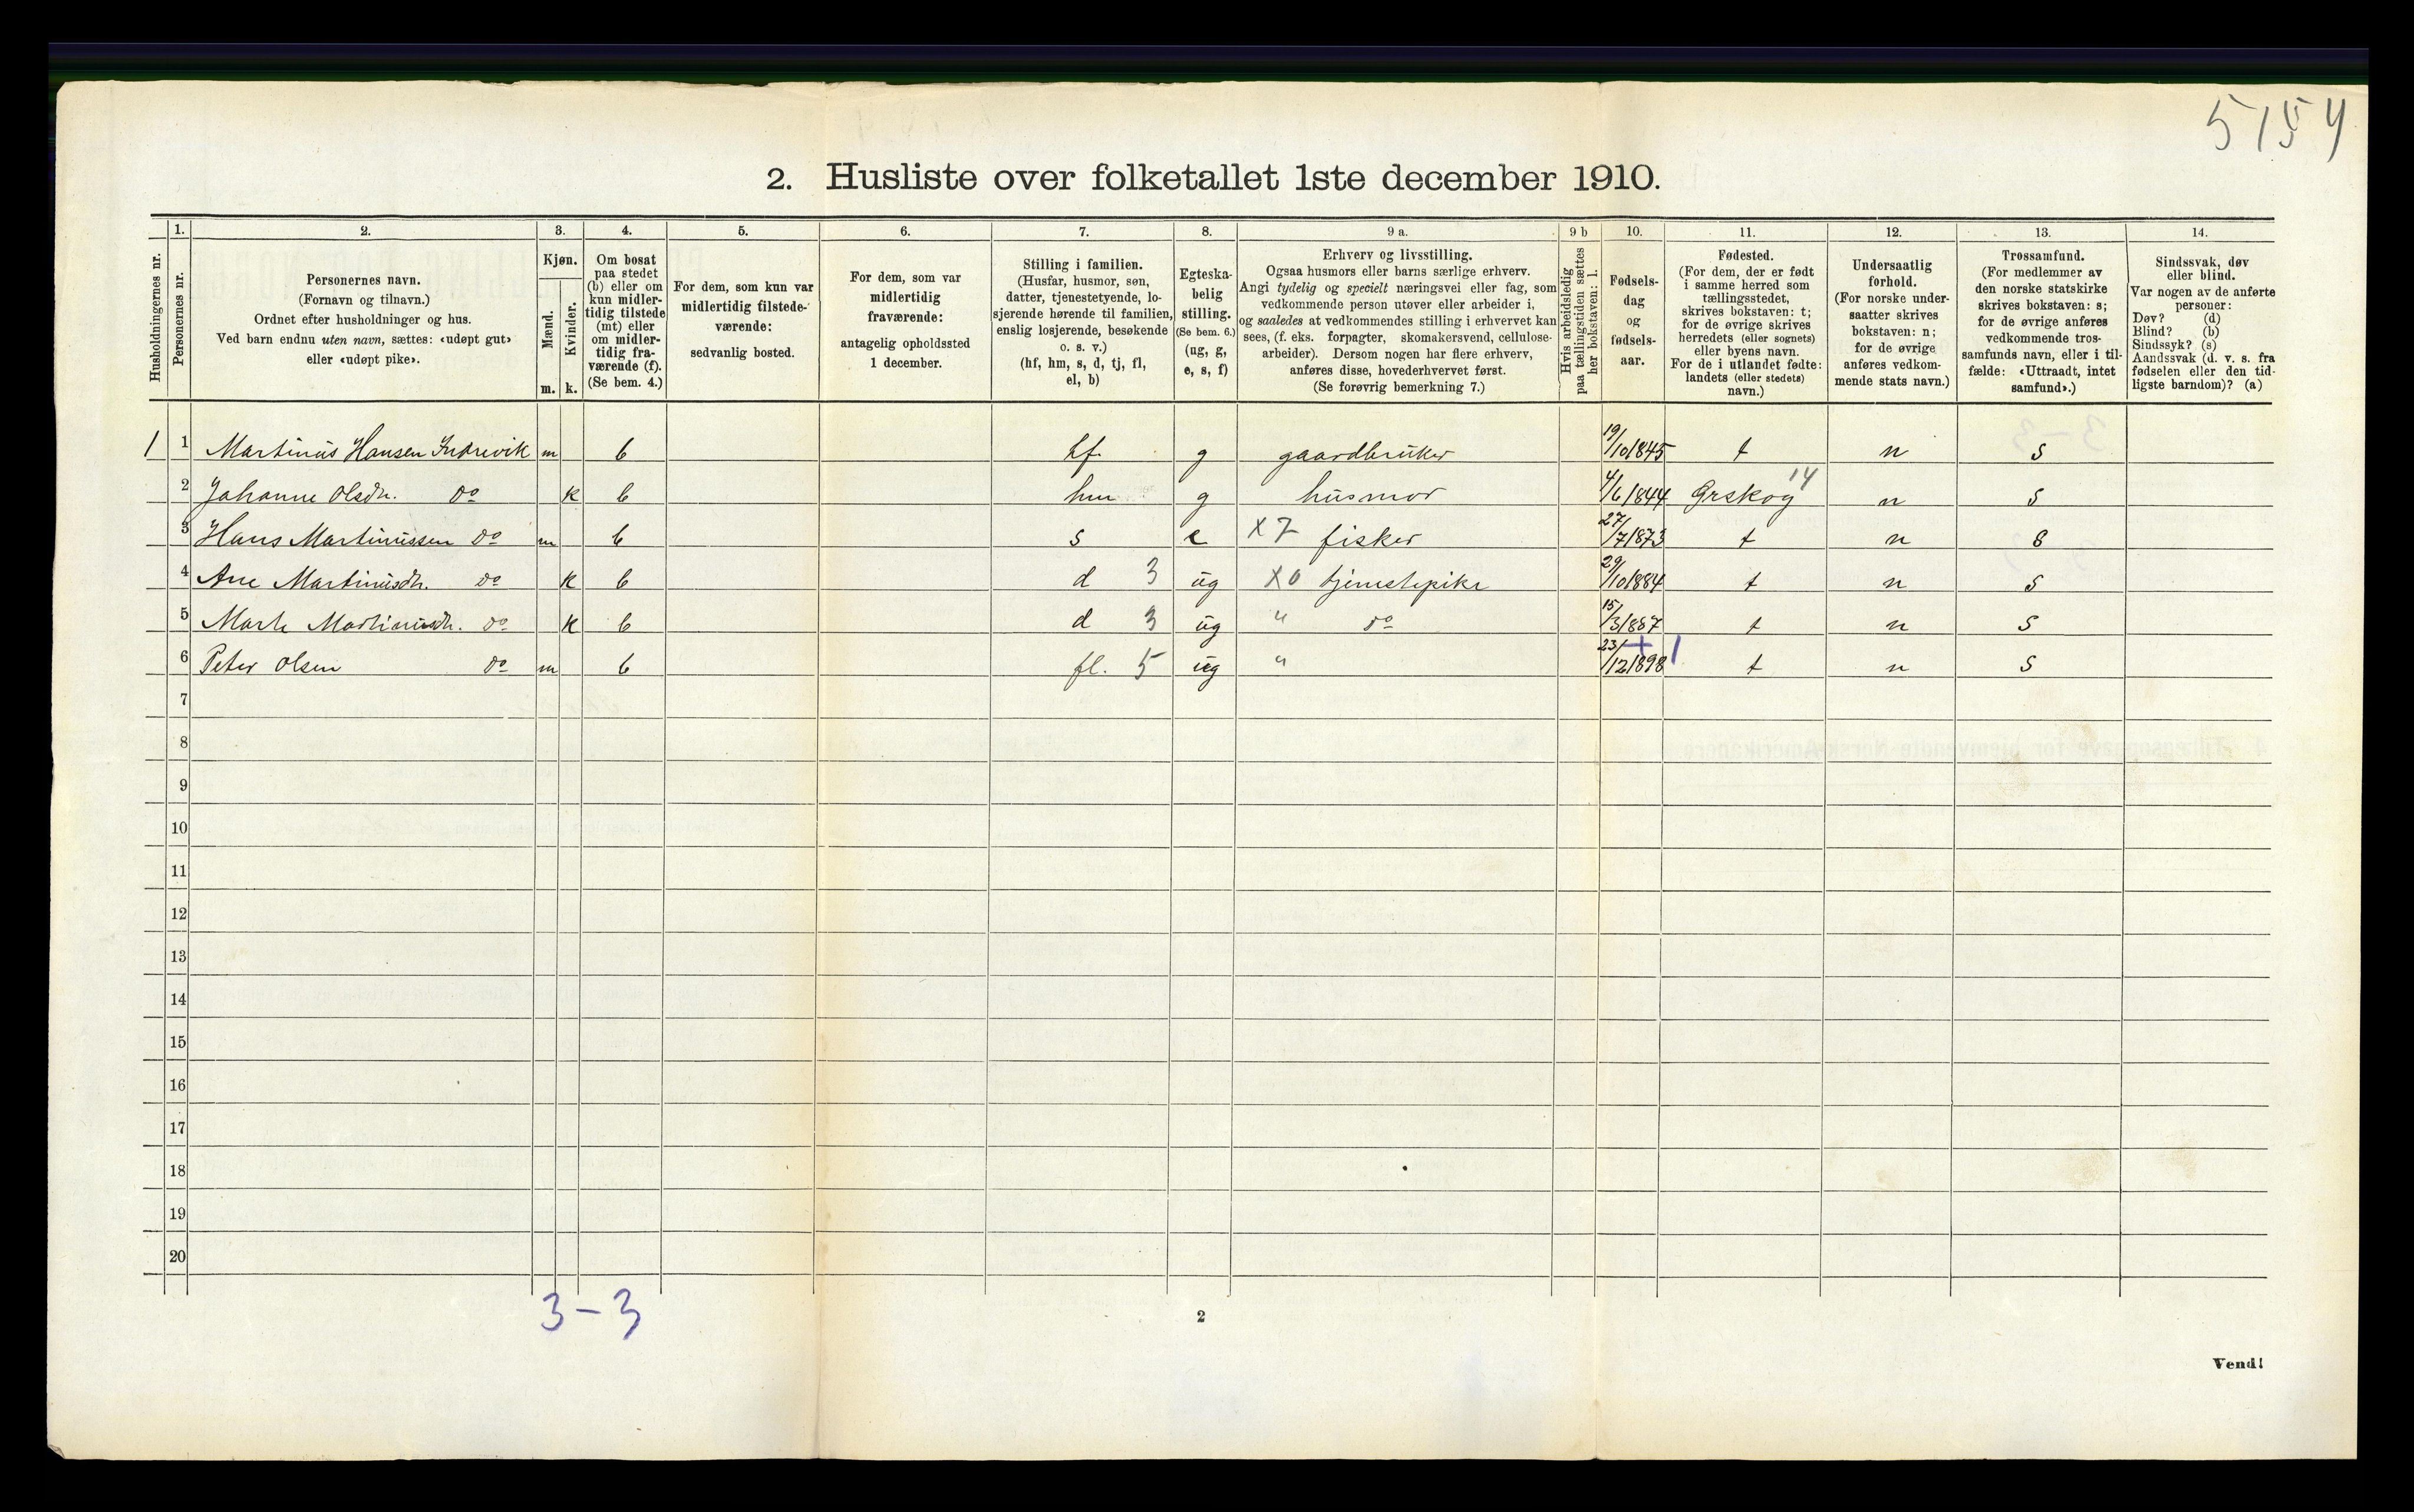 5154
2. Husliste over folketallet 1ste december 1910.
1. 2. 3. 4. 5. 6. 7. 8. 9 a. 9 b 10. 11. 12. 13. 14.
Husholdningernes nr.
Personernes nr.
Personernes navn.
(Fornavn og tilnavn.)
Ordnet efter husholdninger og hus.
Ved barn endnu uten navn, sættes: «udøpt gut»
eller «udøpt pike».
Kjøn.
Mænd.
Kvinder.
m. k.
Om bosat
paa stedet
(b) eller om
kun midler-
tidig tilstede
(mt) eller
om midler-
tidig fra-
værende (f).
(Se bem. 4.)
For dem, som kun var
midlertidig tilstede-
værende:
sedvanlig bosted.
For dem, som var
midlertidig
fraværende:
antagelig opholdssted
1 december.
Stilling i familien.
(Husfar, husmor, søn,
datter, tjenestetyende, lo-
sjerende hørende til familien,
enslig losjerende, besøkende
o. s. v.)
(hf, hm, s, d, tj, fl,
el, b)
Egteska-
belig
stilling.
(Se bem. 6.)
(ug, g,
e, s, f)
Erhverv og livsstilling.
Ogsaa husmors eller barns særlige erhverv.
Angi tydelig og specielt næringsvei eller fag, som
vedkommende person utøver eller arbeider i,
og saaledes at vedkommendes stilling i erhvervet kan
sees, (f. eks. forpagter, skomakersvend, cellulose-
arbeider). Dersom nogen har flere erhverv,
anføres disse, hovederhvervet først.
(Se forøvrig bemerkning 7.)
Hvis arbeidsledig
paa tællingstiden sættes
her bokstaven: l.
Fødsels-
dag
og
fødsels-
aar.
Fødested.
(For dem, der er født
i samme herred som
tællingsstedet,
skrives bokstaven: t;
for de øvrige skrives
herredets (eller sognets)
eller byens navn.
For de i utlandet fødte:
landets (eller stedets)
navn.)
Undersaatlig
forhold.
(For norske under-
saatter skrives
bokstaven: n;
for de øvrige
anføres vedkom-
mende stats navn.)
Trossamfund.
(For medlemmer av
den norske statskirke
skrives bokstaven: s;
for de øvrige anføres
vedkommende tros-
samfunds navn, eller i til-
fælde: «Uttraadt, intet
samfund».)
Sindssvak, døv
eller blind.
Var nogen av de anførte
personer:
Døv? (d)
Blind? (b)
Sindssyk? (s)
Aandssvak (d. v. s. fra
fødselen eller den tid-
ligste barndom)? (a)
1 1 Martinus Hansen Indrevik m b hf. g gaardbruker 19/10 1845 t n s
2 Johanne Olsdr. do k b hm g husmor 4/6 1844 Ørskog 14 n s
3 Hans Martinussen do m b s e x 7 fisker 27/7 1873 t n s
4 Ane Martinusdr. do k b d 3 ug x 0 tjenestepike 29/10 1884 t n s
5 Marte Martinusdr. do k b d 3 ug " do 15/3 1887 t n s
6 Peter Olsen do m b fl. 5 ug " 23/12 1898 + 1 t n s
7
8
9
10
11
12
13
14
15
16
17
18
19
20
3 - 3
2
Vend!